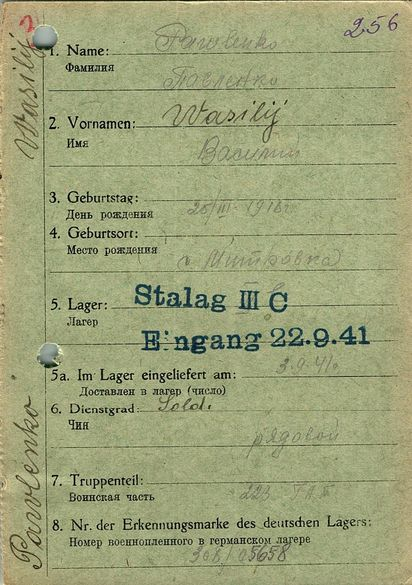 256
1. Name: Pawlenko
Фамилия
Павленко
2. Vornamen: Wasilij
Имя
Василий
3. Geburtstag:
День рождения
4. Geburtsort:
Место рождения
5. Lager: Stalag III C
Лагер
Eingang 22.9.41
5a. Im Lager eingeliefert am: 3.9.41
Доставлен в лагер (число)
6. Dienstgrad: Sold.
Чин
рядовой
7. Truppenteil:
Воинская часть
8. Nr. der Erkennungsmarke des deutschen Lagers:
Номер военнопленного в германском лагере
Pawlenko Wasilij